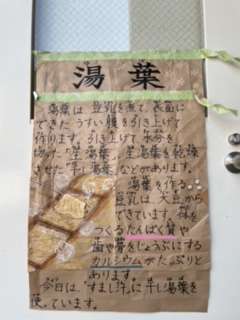 湯葉
湯葉は豆乳を煮て、表面に
できたうすい膜を引き上げて
作ります。引き上げて水分を
切った「生湯葉」、生湯葉を乾燥
させた「干し湯葉」などがあります。
湯葉を作る
豆乳は、大豆から
できています。体を
つくるたんぱく質や
歯や骨をじょうぶにする
カルシウムがたっぷりと
あります。
今日は、"すまし汁"に干し湯葉を
使っています。